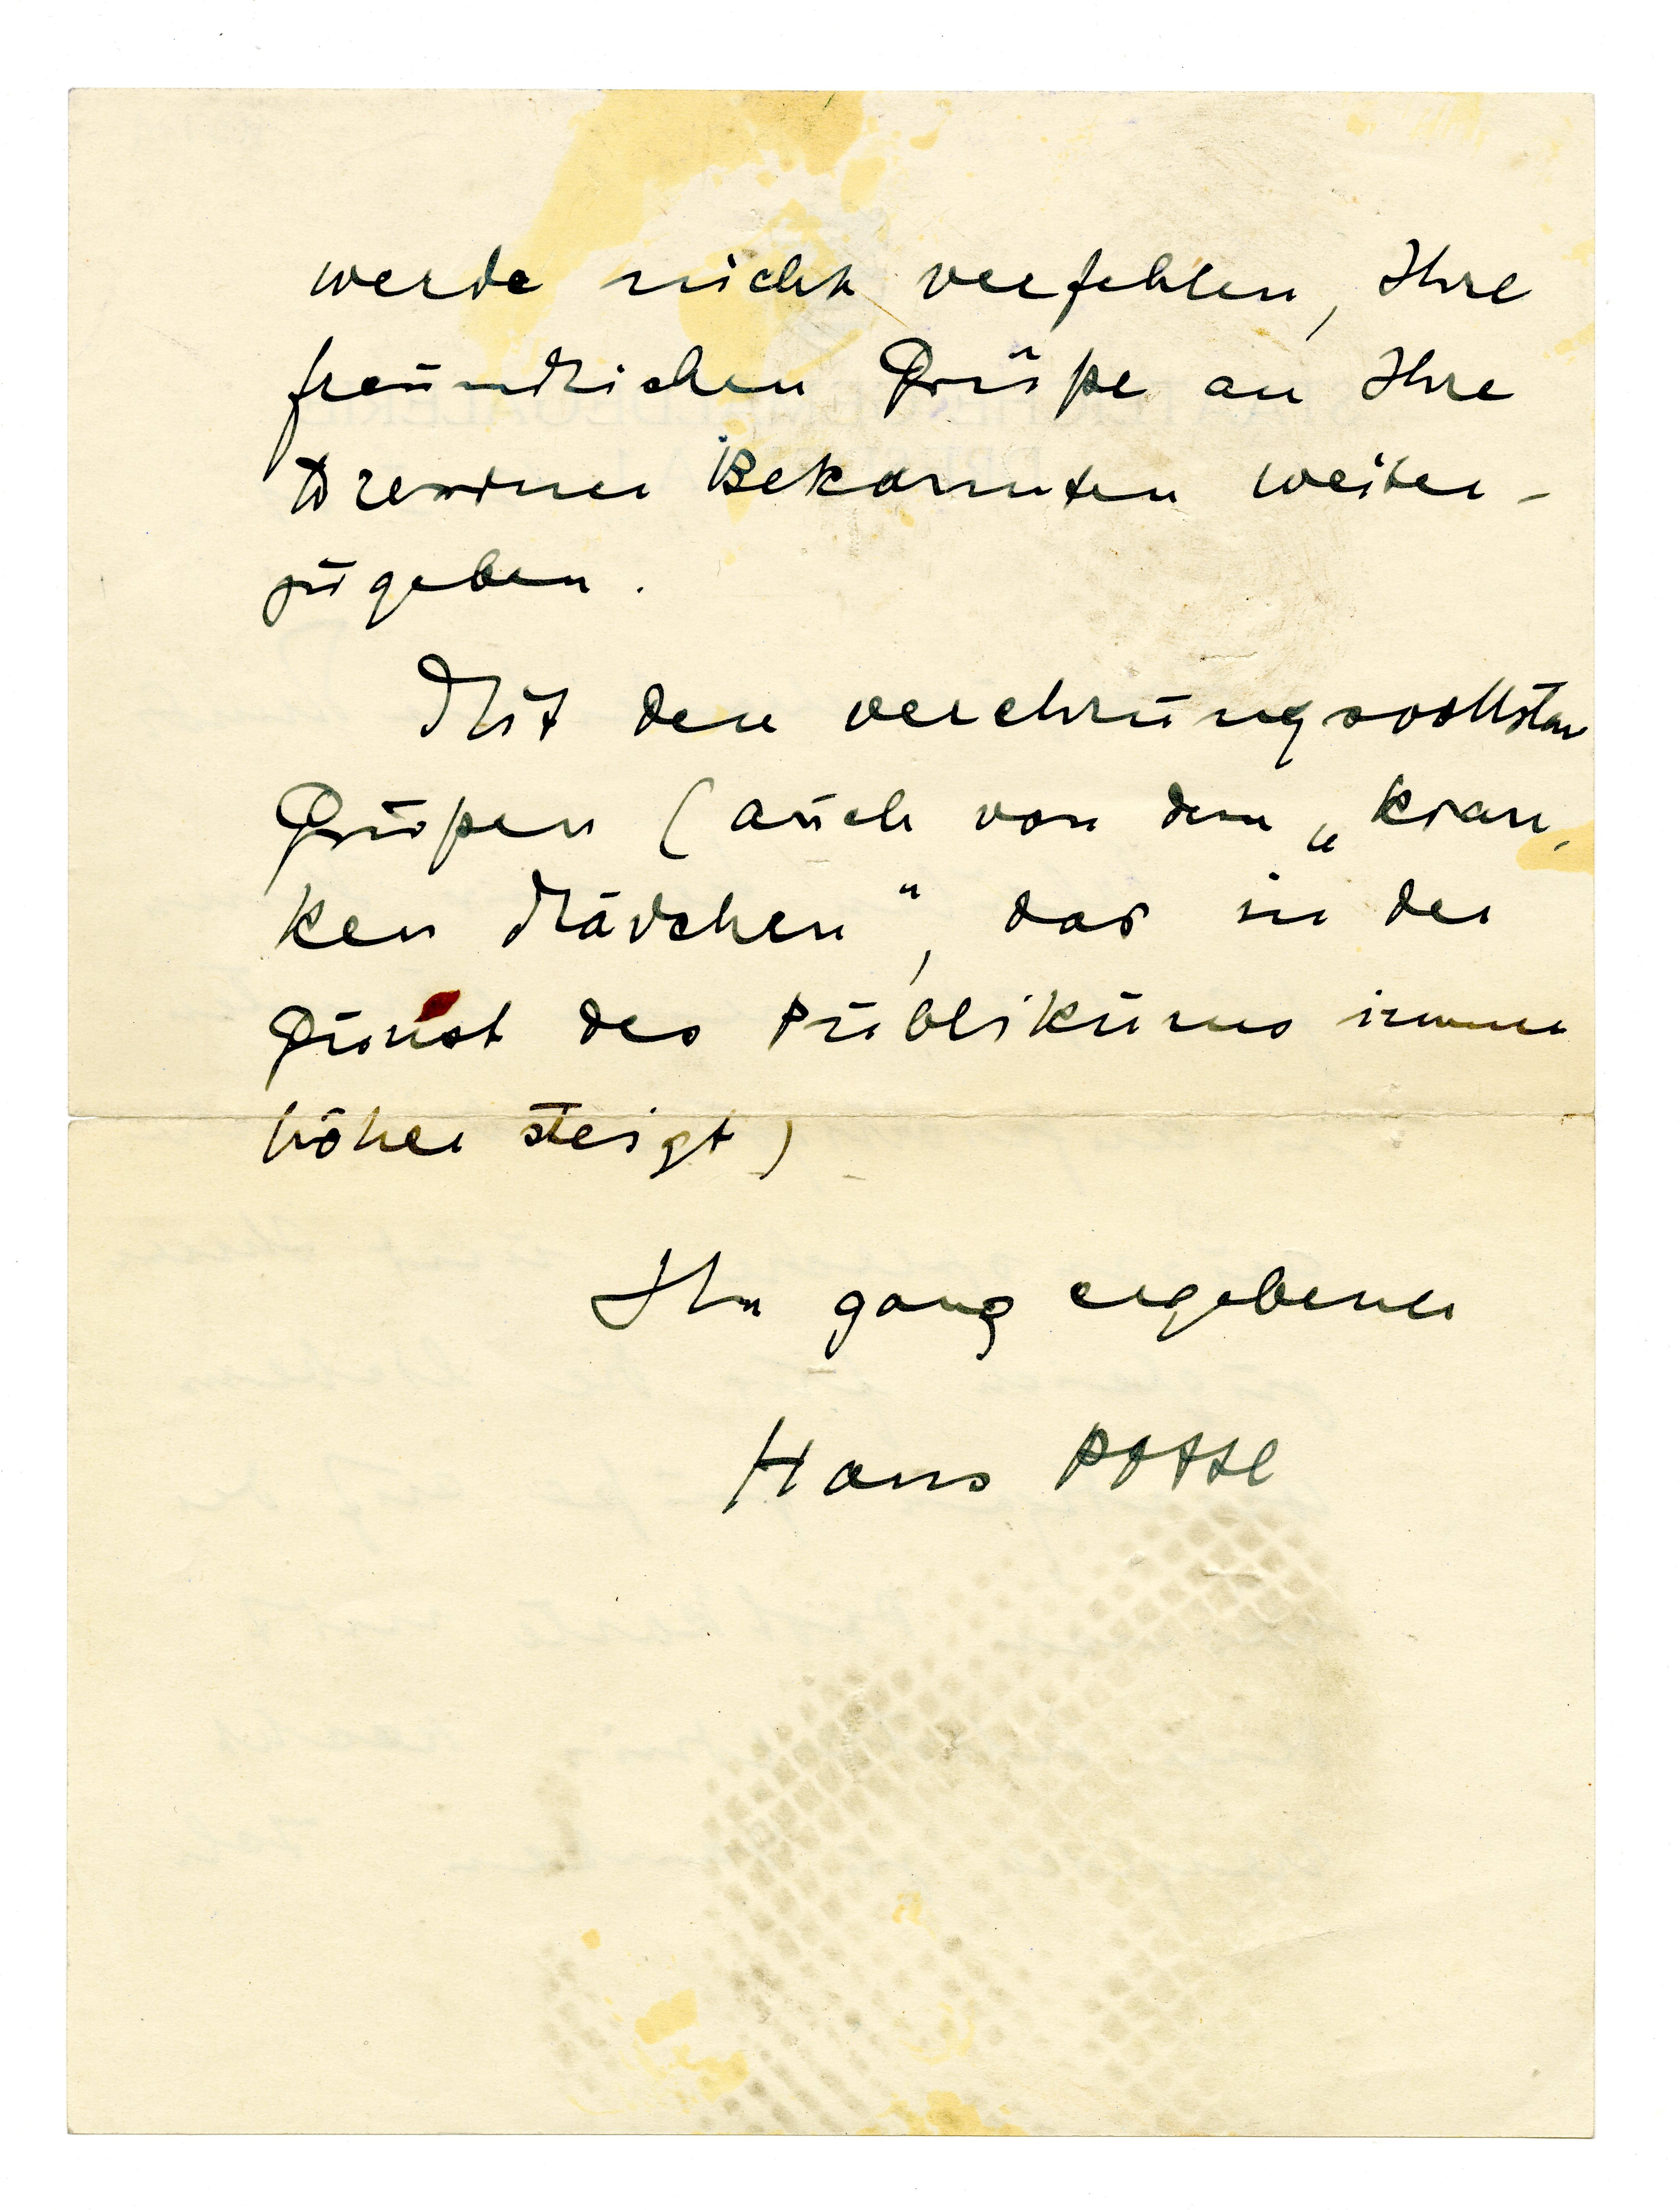 werde nicht verfehlen, Ihre
freundlichen Grüße an Ihre
Dresdner Bekannten weiter-
zugeben.
Mit den verehrungsvollsten
Grüßen (auch von dem „kran-
ken Mädchen“, das in der
Gunst des Publikums immer
höher steigt)
Ihr ganz ergebener
Hans Posse